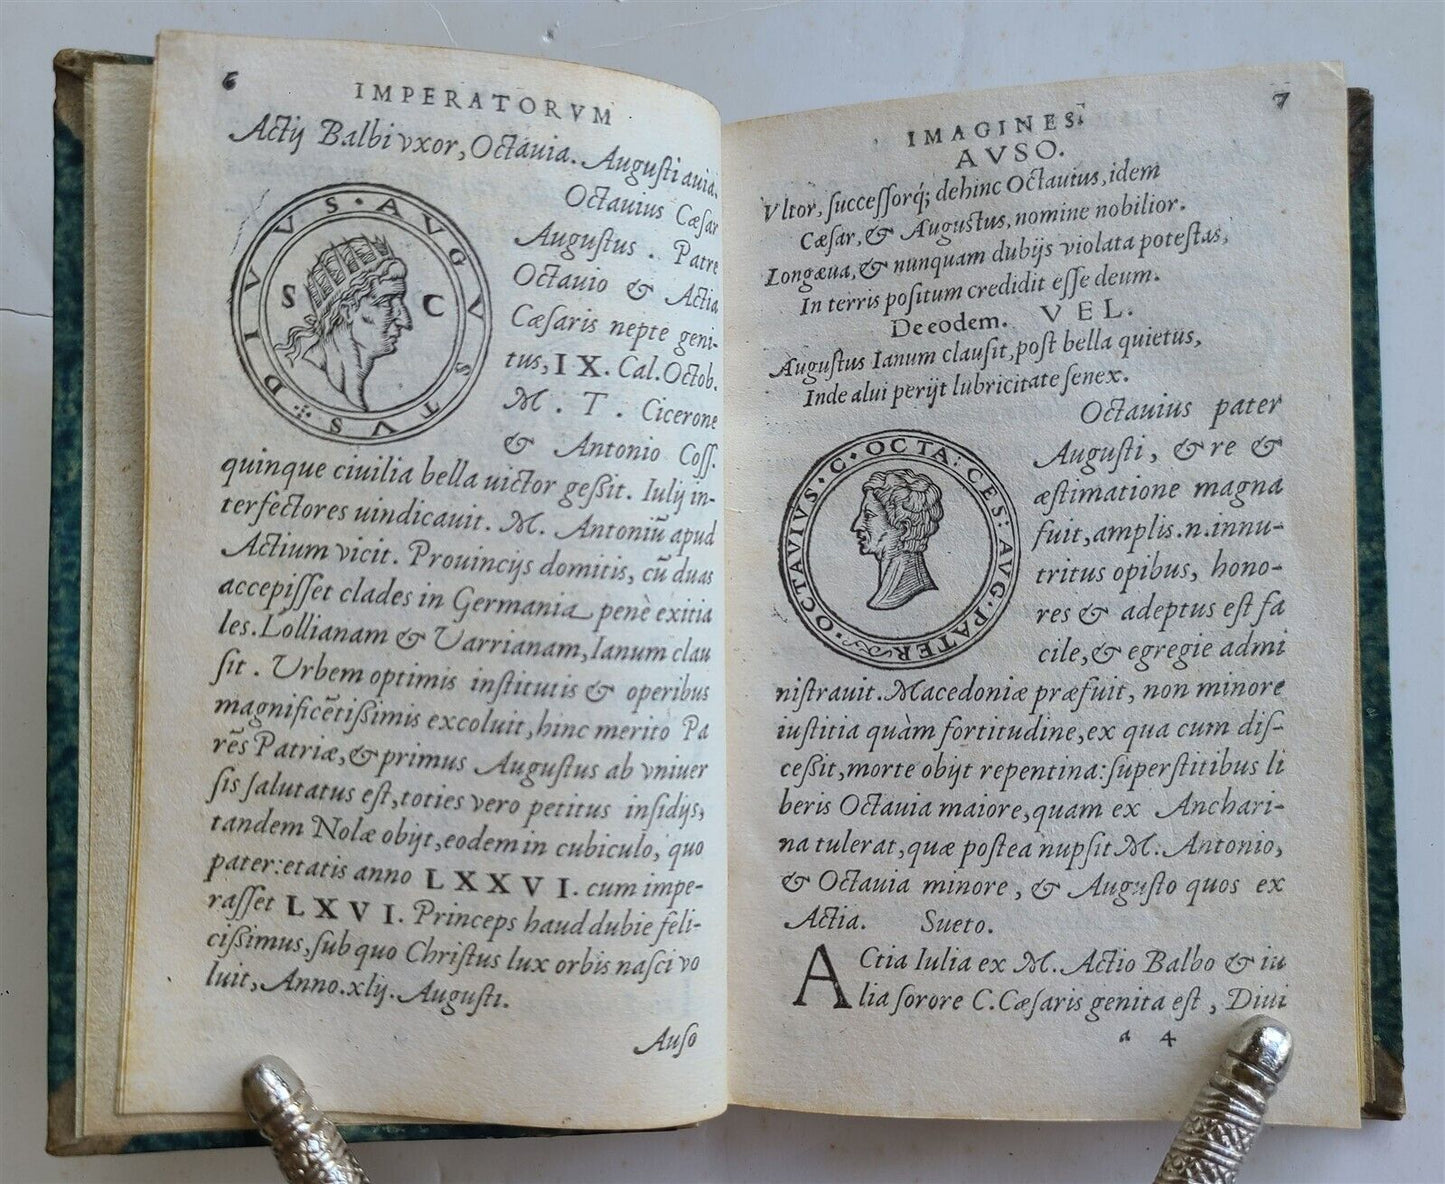 6
IMPERATORVM
Actij Balbi vxor, Octauia. Augusti auia.
DIVVS · AVGVSTVS ·
S C
Octauius Cæsar
Augustus. Patre
Octauio & Actia
Cæsaris nepte geni-
tus, IX. Cal. Octob.
M. T. Cicerone
& Antonio Coss.
quinque ciuilia bella uictor gessit. Iulij in-
terfectores uindicauit. M. Antoniũ apud
Actium vicit. Prouincijs domitis, cũ duas
accepisset clades in Germania penè exitia
les. Lollianam & Varrianam, Ianum clau
sit. Vrbem optimis institutis & operibus
magnificẽtissimis excoluit, hinc meritò Pa
rẽs Patriæ, & primus Augustus ab vniuer
sis salutatus est, toties vero petitus insidijs,
tandem Nolæ obijt, eodem in cubiculo, quo
pater: etatis anno LXXVI. cum impe-
rasset LXVI. Princeps haud dubie feli-
cissimus, sub quo Christus lux orbis nasci vo
luit, Anno. xlij. Augusti.
Auso
7
IMAGINES.
AVSO.
Vltor, successorq́; dehinc Octauius, idem
Cæsar, & Augustus, nomine nobilior.
Longæua, & nunquam dubijs violata potestas,
In terris positum credidit esse deum.
De eodem. VEL.
Augustus Ianum clausit, post bella quietus,
Inde alui perijt lubricitate senex.
OCTAVIVS · C · OCTA: CES: AVG · PATER ·
Octauius pater
Augusti, & re &
æstimatione magna
fuit, amplis. n. innu-
tritus opibus, hono-
res & adeptus est fa
cile, & egregie admi
nistrauit. Macedoniæ præfuit, non minore
iustitia quàm fortitudine, ex qua cum dis-
cessit, morte obijt repentina: superstitibus li
beris Octauia maiore, quam ex Anchari-
na tulerat, quæ postea nupsit M. Antonio,
& Octauia minore, & Augusto quos ex
Actia. Sueto.
ACtia Iulia ex M. Actio Balbo & iu
lia sorore C. Cæsaris genita est, Diui
a 4